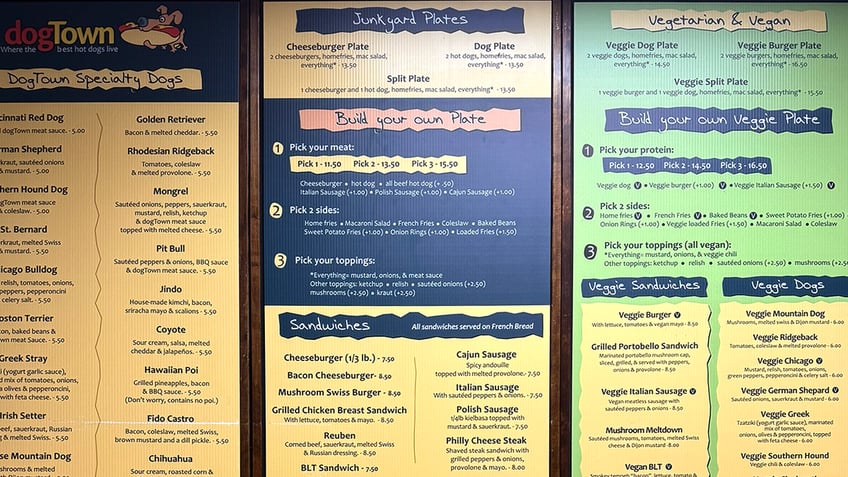 dogTown
Where the best hot dogs live
DogTown Specialty Dogs
cinnati Red Dog
dogTown meat sauce. - 5.00
rman Shepherd
erkraut, sautéed onions
& mustard. - 5.00
hern Hound Dog
wn meat sauce
& coleslaw. - 5.00
St. Bernard
erkraut, melted Swiss
& mustard. - 5.00
hicago Bulldog
relish, tomatoes, onions,
peppers, pepperoncini
celery salt. - 5.00
oston Terrier
con, baked beans &
Town meat sauce. - 5.00
Greek Stray
(yogurt garlic sauce),
d mix of tomatoes, onions,
olives & pepperoncini,
with feta cheese. - 5.00
Irish Setter
beef, sauerkraut, Russian
g & melted Swiss. - 5.00
se Mountain Dog
ms, sautéed onions, melted
Golden Retriever
Bacon & melted cheddar. - 5.50
Rhodesian Ridgeback
Tomatoes, coleslaw
& melted provolone. - 5.50
Mongrel
Sautéed onions, peppers, sauerkraut,
mustard, relish, ketchup
& dogTown meat sauce
topped with melted cheese. - 5.50
Pit Bull
Sautéed peppers & onions, BBQ sauce
& dogTown meat sauce. - 5.50
Jindo
House-made kimchi, bacon,
sriracha mayo & scalions. - 5.50
Coyote
Sour cream, salsa, melted
cheddar & jalapeños. - 5.50
Hawaiian Poi
Grilled pineapples, bacon
& BBQ sauce. - 5.50
(Don't worry, contains no poi.)
Fido Castro
Bacon, coleslaw, melted Swiss,
brown mustard and a dill pickle. - 5.50
Chihuahua
Sour cream, roasted corn &
Junkyard Plates
Cheeseburger Plate
2 cheeseburgers, homefries, mac salad,
everything* - 13.50
Dog Plate
2 hot dogs, homefries, mac salad,
everything* - 13.50
Split Plate
1 cheeseburger and 1 hot dog, homefries, mac salad, everything* - 13.50
Build your own Plate
1 Pick your meat:
Pick 1 - 11.50 Pick 2 - 13.50 Pick 3 - 15.50
Cheeseburger • hot dog • all beef hot dog (+ .50)
Italian Sausage (+1.00) • Polish Sausage (+1.00) • Cajun Sausage (+1.00)
2 Pick 2 sides:
Home fries • Macaroni Salad • French Fries • Coleslaw • Baked Beans
Sweet Potato Fries (+1.00) • Onion Rings (+1.00) • Loaded Fries (+1.50)
3 Pick your toppings:
*Everything= mustard, onions, & meat sauce
Other toppings: ketchup • relish • sautéed onions (+2.50)
mushrooms (+2.50) • kraut (+2.50)
Sandwiches
All sandwiches served on French Bread
Cheeseburger (1/3 lb.) - 7.50
Bacon Cheeseburger - 8.50
Mushroom Swiss Burger - 8.00
Grilled Chicken Breast Sandwich
With lettuce, tomatoes & mayo. - 8.00
Reuben
Corned beef, sauerkraut, melted Swiss
& Russian dressing. - 8.50
BLT Sandwich - 7.50
Cajun Sausage
Spicy andouille
topped with melted provolone. - 7.50
Italian Sausage
With sautéed peppers & onions. - 7.50
Polish Sausage
1/4lb kielbasa topped with
mustard & sauerkraut. - 7.50
Philly Cheese Steak
Shaved steak sandwich with
grilled peppers & onions,
provolone & mayo. - 8.00
Vegetarian & Vegan
Veggie Dog Plate
2 veggie dogs, homefries, mac salad,
everything* - 14.50
Veggie Burger Plate
2 veggie burgers, homefries, mac salad,
everything* - 16.50
Veggie Split Plate
1 veggie burger and 1 veggie dog, homefries, mac salad, everything* - 15.50
Build your own Veggie Plate
1 Pick your protein:
Pick 1 - 12.50 Pick 2 - 14.50 Pick 3 - 16.50
Veggie dog V • Veggie burger (+1.00) V • Veggie Italian Sausage (+1.50) V
2 Pick 2 sides:
Home fries V • French Fries V • Baked Beans V • Sweet Potato Fries (+1.00)
Onion Rings (+1.00) • Veggie loaded Fries (+1.50) • Macaroni Salad • Coleslaw
3 Pick your toppings (all vegan):
*Everything= mustard, onions, & veggie chili
Other toppings: ketchup • relish • sautéed onions (+2.50) • mushrooms (+2.50)
Veggie Sandwiches
Veggie Burger V
With lettuce, tomatoes & vegan mayo - 8.50
Grilled Portobello Sandwich
Marinated portobello mushroom cap,
sliced, grilled, & served with peppers,
onions & provolone - 8.50
Veggie Italian Sausage V
Vegan meatless sausage with
sautéed peppers & onions - 8.50
Mushroom Meltdown
Sautéed mushrooms, tomatoes, melted Swiss
cheese & Dijon mustard - 8.00
Vegan BLT V
Smokey tempeh "bacon", lettuce, tomato &
Veggie Dogs
Veggie Mountain Dog
Mushrooms, melted swiss & Dijon mustard - 6.00
Veggie Ridgeback
Tomatoes, coleslaw & melted provolone - 6.00
Veggie Chicago V
Mustard, relish, tomatoes, onions,
green peppers, pepperoncini & celery salt - 6.00
Veggie German Shepard V
Sautéed onions, sauerkraut & mustard - 6.00
Veggie Greek
Tzatziki (yogurt garlic sauce), marinated
mix of tomatoes,
onions, olives & pepperoncini, topped
with feta cheese - 6.00
Veggie Southern Hound
Veggie chili & coleslaw - 6.00